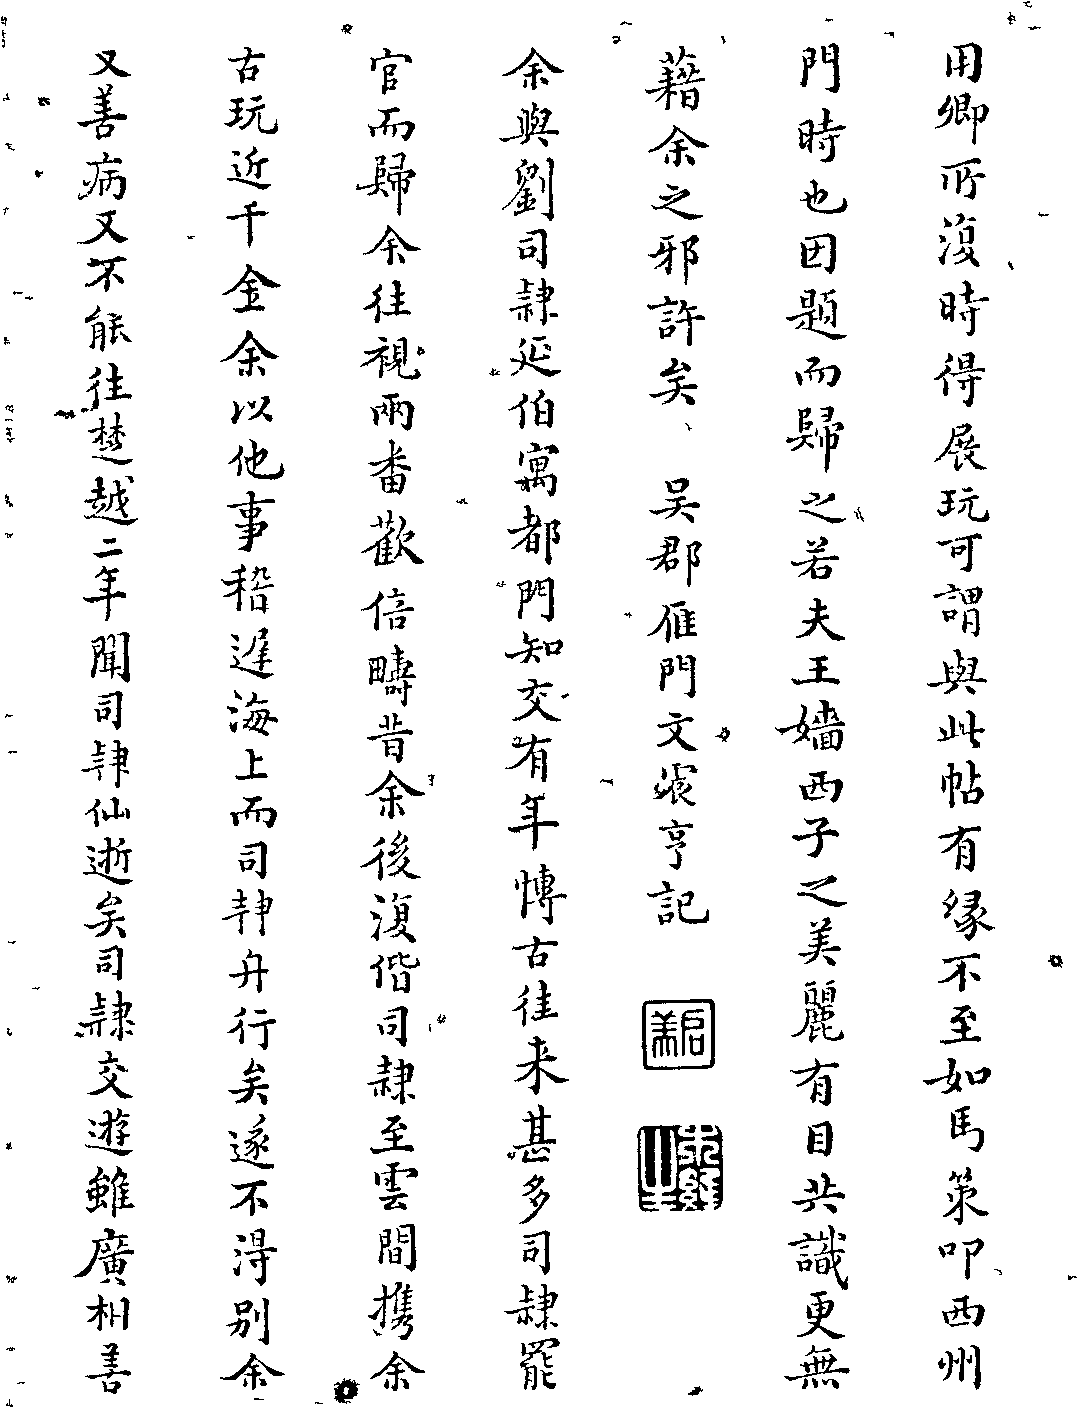 用卿所復時得展玩可謂與此帖有緣不至如馬策叩西州
門時也因題而歸之若夫王嬙西子之美麗有目共識更無
藉余之邪許矣 吳郡雁門文震亨記
余與劉司隸延伯寓都門知交有年博古往来甚多司隸罷
官而歸余往視兩番歡倍疇昔余後復偕司隸至雲間携余
古玩近千金余以他事稽遲海上而司隸舟行矣遂不得别余
又善病又不能往楚越二年聞司隸仙逝矣司隸交遊雖廣相善